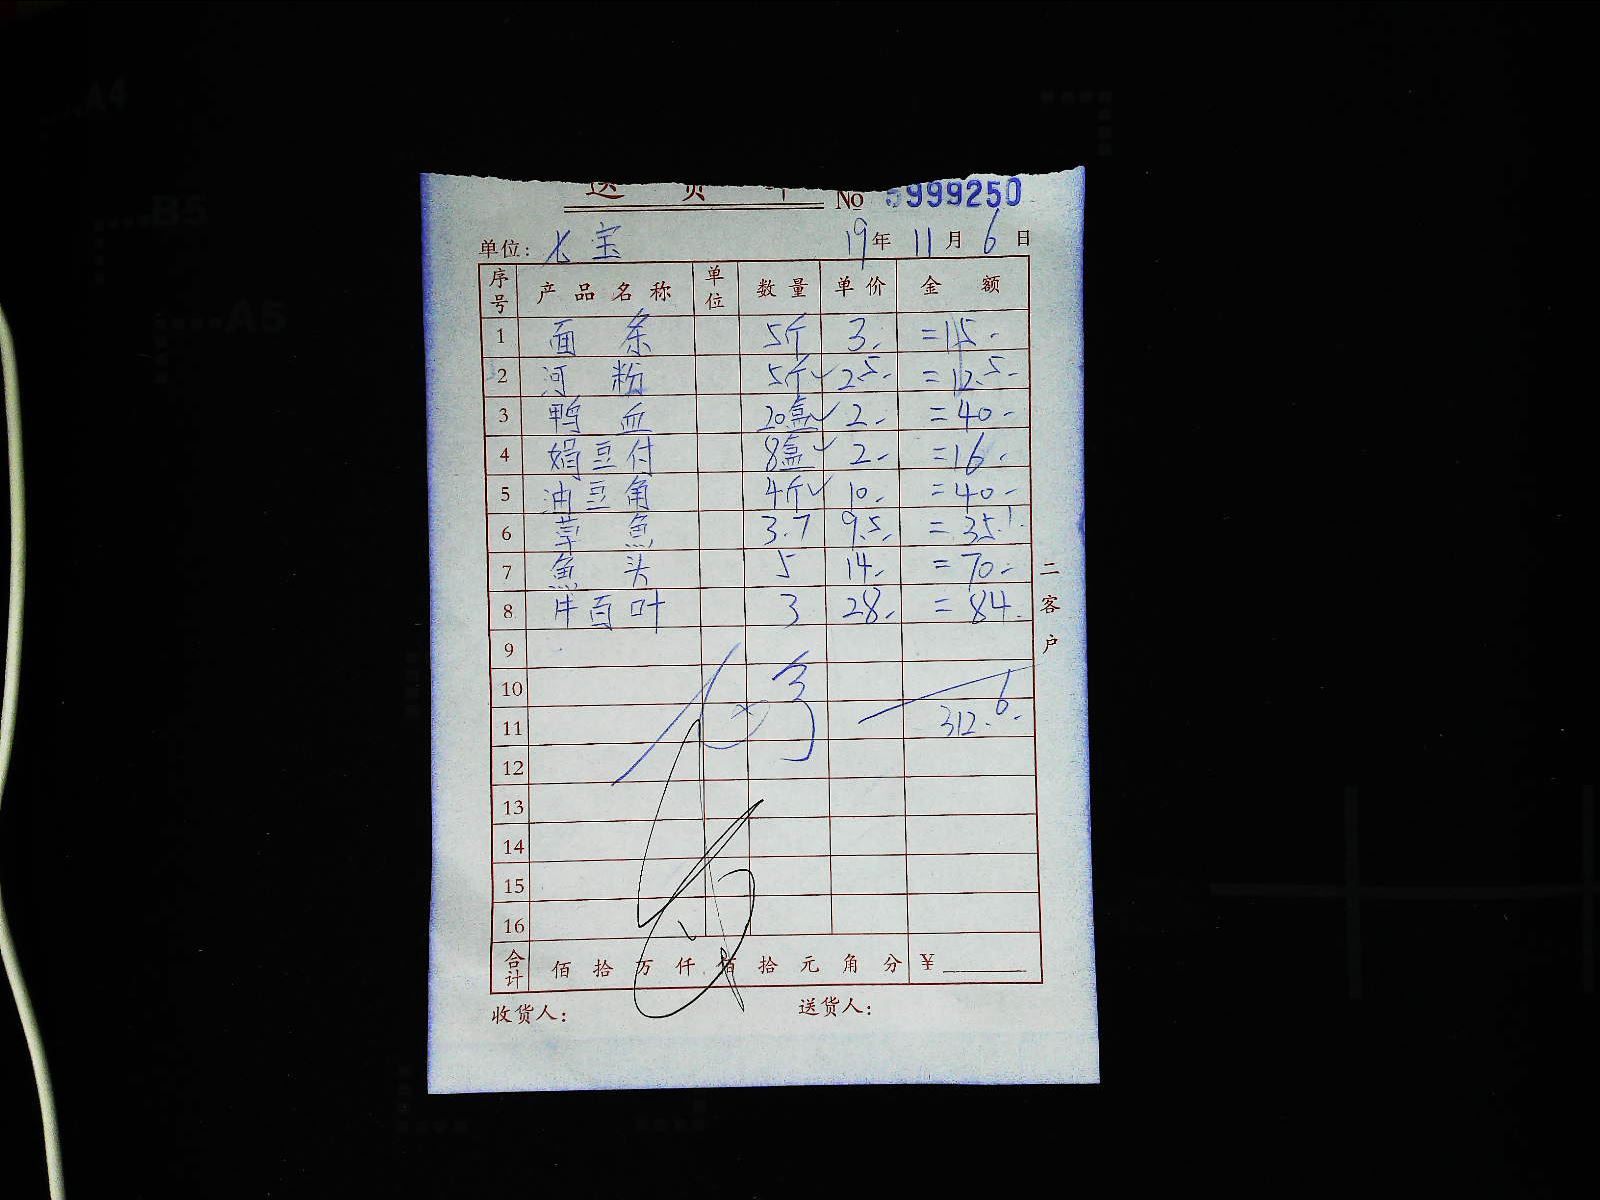 送货单 No 5999250
单位: 七宝 19年 11月 6日
序号 产品名称 单位 数量 单价 金额
1 面条 5斤 3. =15.-
2 河粉 5斤✓ 2.5.- =12.5.-
3 鸭血 20盒✓ 2.- =40.-
4 娟豆付 8盒✓ 2.- =16.
5 油豆角 4斤✓ 10.- =40.-
6 草魚 3.7 9.5.- =35.1.
7 魚头 5 14.- =70.-
8 牛百叶 3 28.- =84.
9
10
11 312.6.
12
13
14
15
16
合计 佰拾万仟佰拾元角分 ¥
收货人: 送货人:
二客户
A4
B5
A5